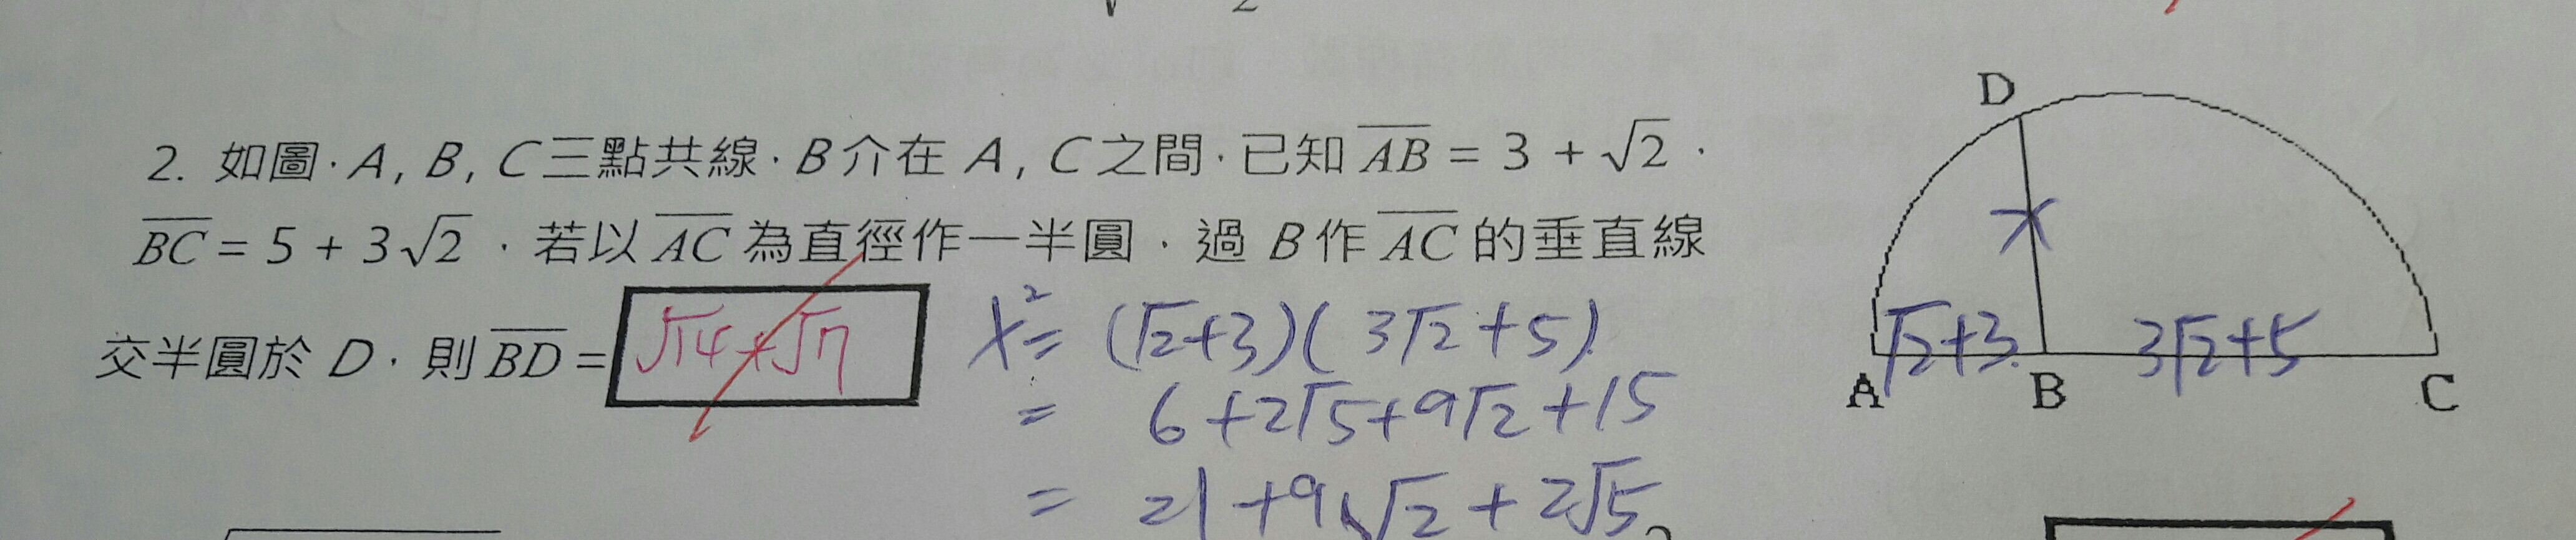 2. 如圖，A, B, C三點共線，B介在 A, C之間，已知 AB = 3 + √2，
BC = 5 + 3√2，若以 AC 為直徑作一半圓，過 B 作 AC 的垂直線
交半圓於 D，則 BD = √14+√7
x² = (√2+3)(3√2+5)
= 6+2√5+9√2+15
= 21+9√2+2√5
D
x
√2+3 3√2+5
A B C